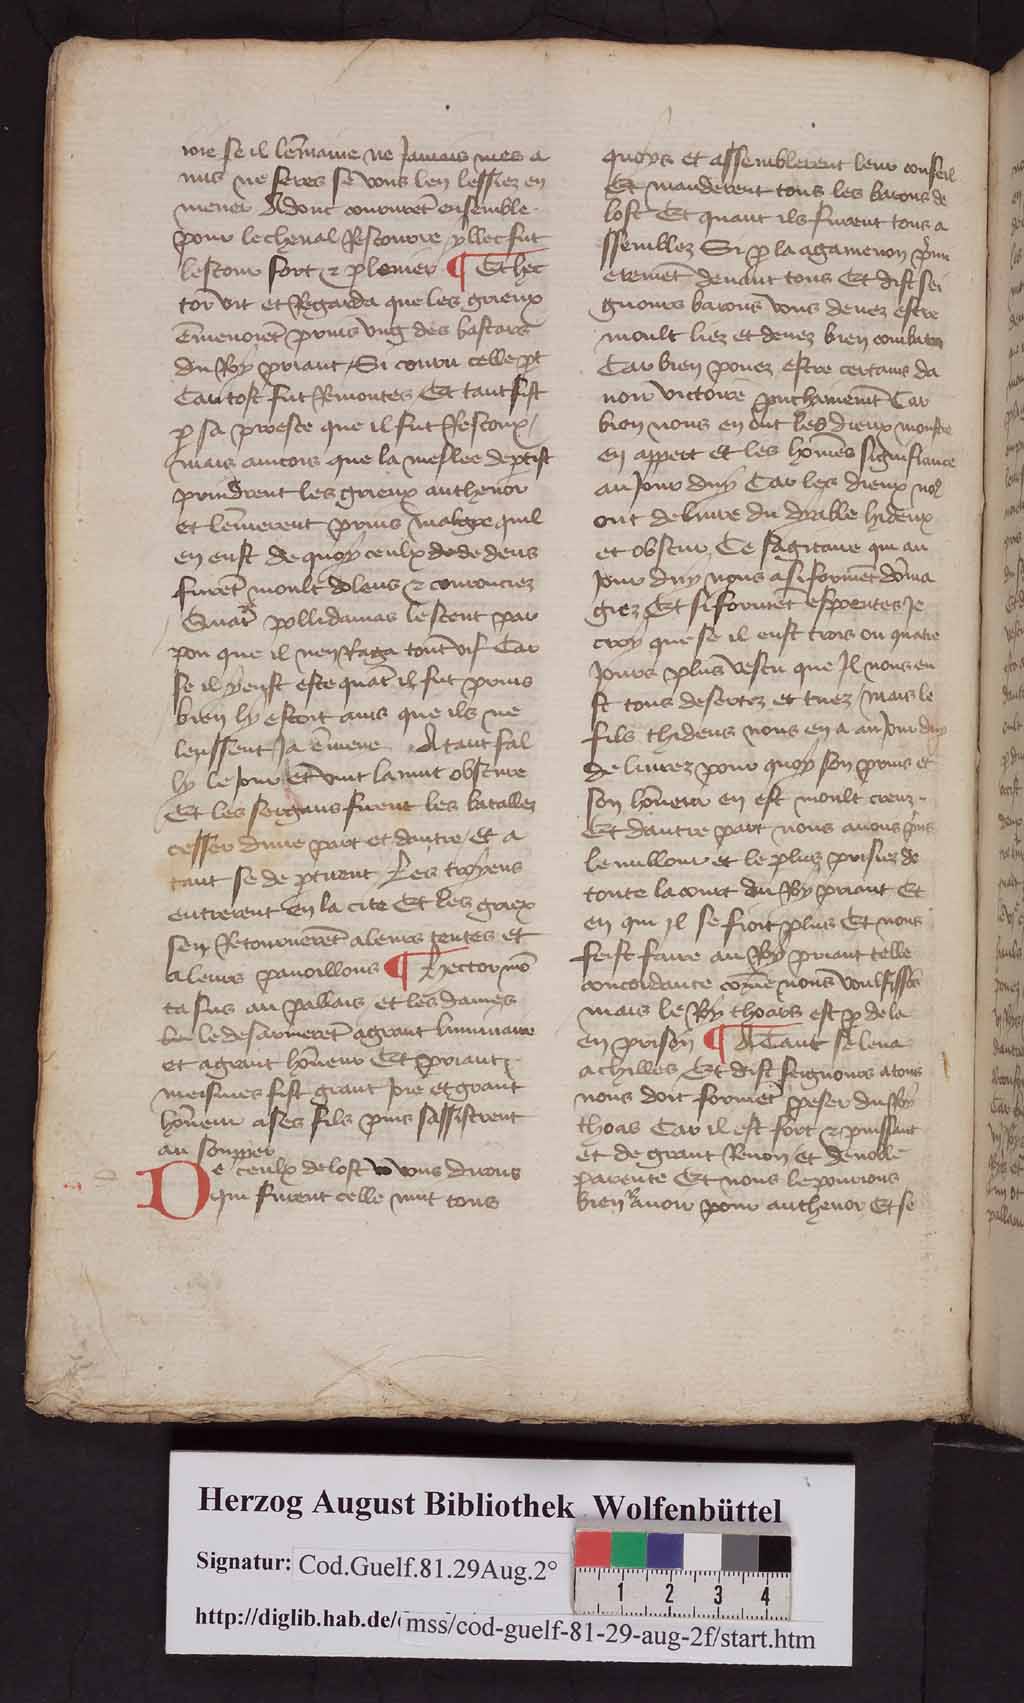 ioie se il le͂maine ne Jamais mes a
mis ne seres se vous len lessiez en
mener Adont coururet͂ ensemble
pour le cheval Rescourre yllec fut
lestour fort ⁊ plenier ¶ Et hec
tor vit et Regarda que les grieux
e͂menoiet͂ prins vng des bastars
du Roy priant / Si couru celle pt
Tantost fut Remontes Et tant fist
p sa proesce que il fut Rescoux /
mais aincois que la meslee deptist
prindrent les grieux anthenor
et le͂merent prins malgre quil
en eust de quoy ceulx de dedens
furet͂ moult dolens ⁊ courouciez
Quat͂ pollidamas lescent par
pou que il nenRaga tout vif Car
se il y eust este quat͂ il fut prins
bien ly estoit auis que ils ne
leussent Ja e͂mene Atant fal
ly le Jour et vint la nuit obscure
Et les sergans firent les batalles
cesser dune part et dautre Et a
tant se departirent Les troyens
entrerent en la cite Et les griex
sen Retourneret͂ a leurs tentes et
a leurs pauoillons ¶ Hector mo͂
ta sus au pallais et les dames
le desarmeret͂ a grant luminaire
et a grant ho͂neur Et priant
meismes fist grant Joie et grant
ho͂neur a ses fils puis sassistrent
au soupper
De ceulx de lost vous dirons
qui furent celle nuit tous
quoys et assemblerent leur conseil
Et manderent tous les barons de
lost Et quant ils furent tous a
ssemblez Si pla agamenon
eremet͂ deuant tous Et dist sei
gnours barons vous deuez estre
moult liez et deuez bien combatre
Car bien pouez estre certains da
uoir victoire prochainemt͂ Car
bien nous en ont les dieux monstre
en appert et les ho͂mes signifiance
au Jour duy Car les dieux no9
ont deliure du dyable hideux
et obscur Ce sagitaire qui au
Jour duy nous a si formet͂ do͂ma
giez Et si formet͂ espoentes Je
croy que se il eust trois ou quatre
Jours plus vescu que Il nous eu
st tous desertez et tuez mais le
fils thideus nous en a au Jour duy
deliurez pour quoy son prins et
son ho͂neur en est moult creuz
Et dautre part nous auons pns
le millour et le pluz prisiez de
toute la court du Roy priant Et
en qui Il se fioit plus Et nous
feist faire au Roy priant telle
concordance co͂me nous voulsisso͂s
mais le Roy thoars est p dela
en prison ¶ ATant se leua
achilles Et dist seignours a tous
nous doit formet͂ peser du Roy
thoas Car il est fort ⁊ puissant
et de grant Renon et de noble
parente Et nous le pourions
bien Rauoir pour anthenor Et se
Herzog August Bibliothek Wolfenbüttel
Signatur: Cod.Guelf.81.29Aug.2°
http://diglib.hab.de/ mss/cod-guelf-81-29-aug-2f/start.htm
1 2 3 4